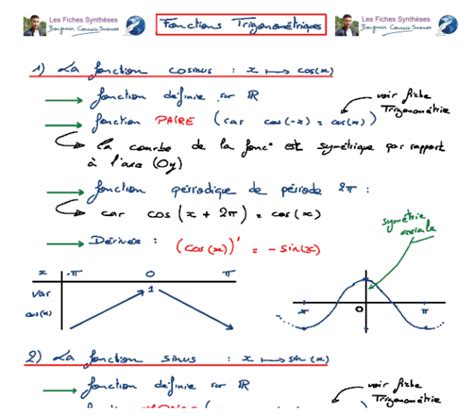 Les Fiches Synthèses Fonctions Trigonométriques Les Fiches Synthèses
Benjamin Benjamin
1) La fonction cosinus : x ⟼ cos(x)
→ fonction définie sur ℝ
voir fiche
Trigonométrie
→ fonction PAIRE (car cos(-x) = cos(x))
↪ la courbe de la fonc° est symétrique par rapport
à l'axe (Oy)
→ fonction périodique de période 2π :
↪ car cos(x + 2π) = cos(x)
symétrie
axiale
→ Dérivée : (cos(x))' = - sin(x)
x -π 0 π
var
cos(x)
1
-π O π
2) La fonction sinus : x ⟼ sin(x)
→ fonction définie sur ℝ
voir fiche
Trigonométrie